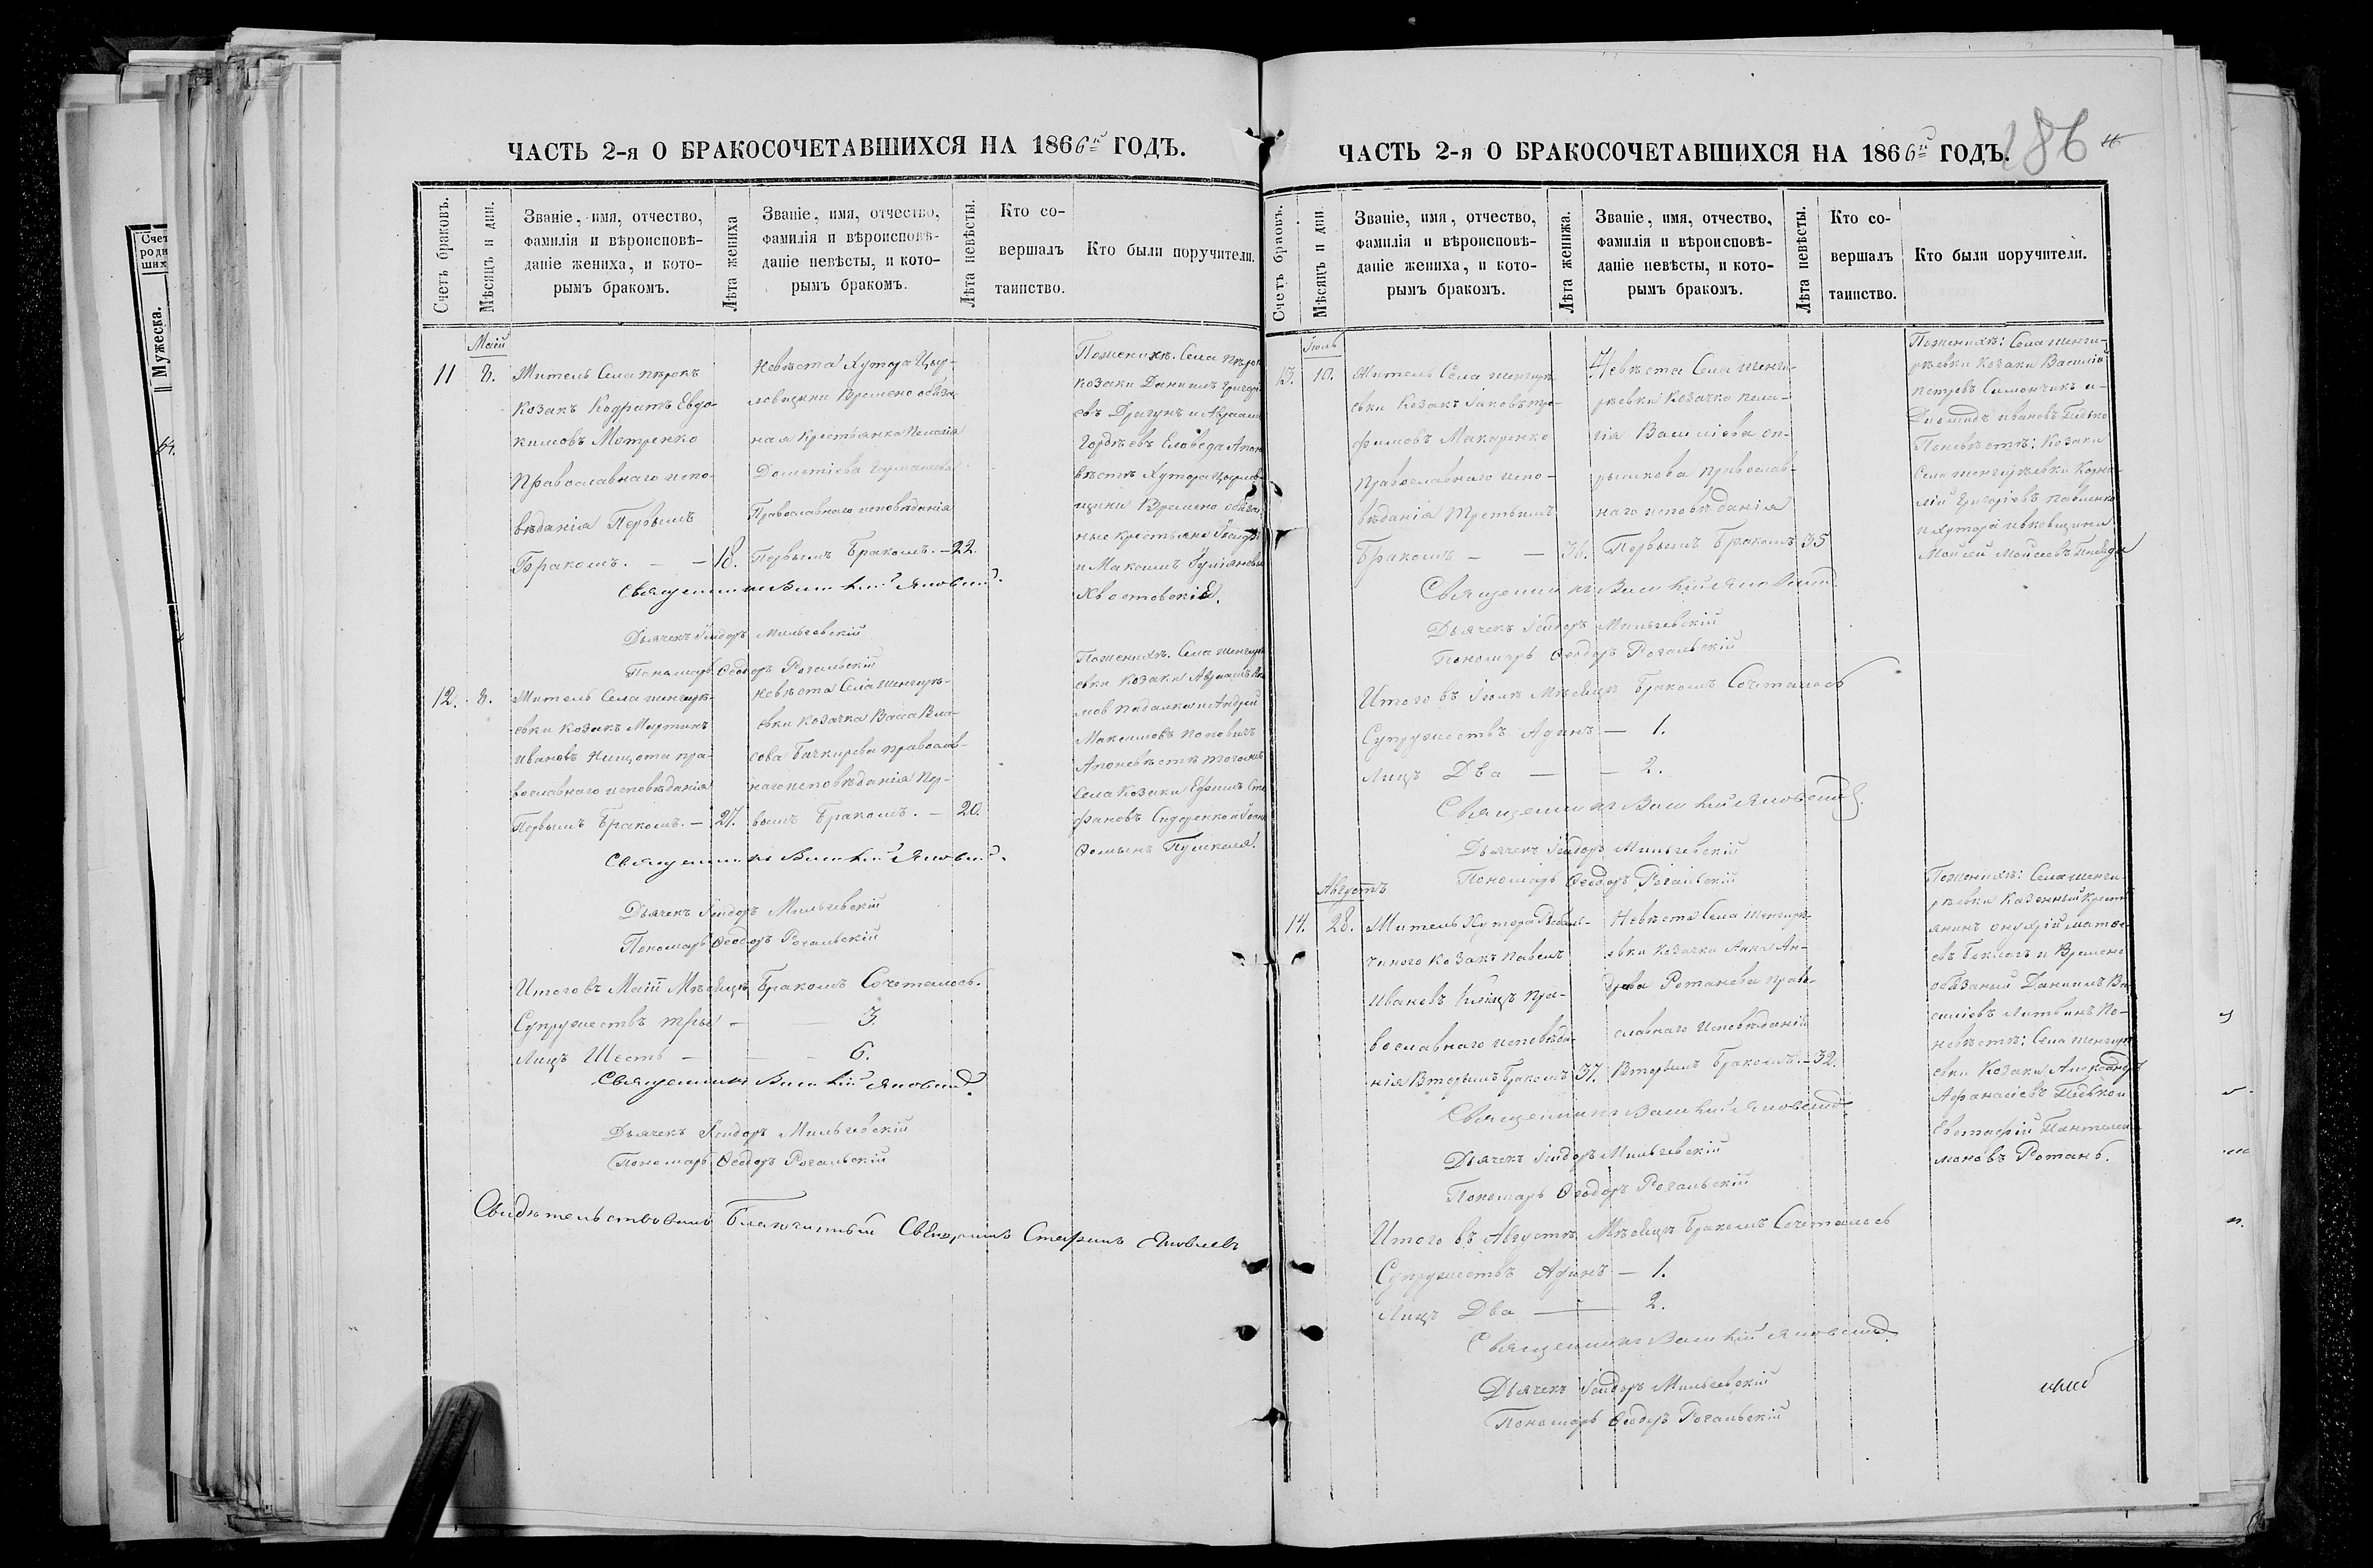 ЧАСТЬ 2-я О БРАКОСОЧЕТАВШИХСЯ НА 1866й ГОДЪ.
Счетъ браковъ.
Мѣсяцъ и дни.
Званіе, имя, отчество,
фамилія и вѣроисповѣ-
даніе жениха, и кото-
рымъ бракомъ.
Лѣта жениха
Званіе, имя, отчество,
фамилія и вѣроисповѣ-
даніе невѣсты, и кото-
рымъ бракомъ.
Лѣта невѣсты.
Кто со-
вершалъ
таинство.
Кто были поручители.
Маій
11
8.
Житель Села
Козакъ Кодратъ Евдо-
кимовъ Мотренко
Православнаго испо-
вѣданія Первымъ
Бракомъ. — — 18.
Невѣста Хутора
Времено обяза-
ная Крестьянка Пелагія
Дометіева
Православнаго исповѣданія
Первымъ Бракомъ. — 22.
По женихѣ. Села
Козаки Даніилъ Григорі-
евъ Драгунъ и
вѣстѣ Хутора
щини Времено обяза-
ные крестьяне
и Максимъ
Хвостовскіе.
Священникъ Василій Яновскій.
Дьячекъ Ісидоръ Мильгевскій
Пономарь Ѳеодоръ Рогальскій
12.
8.
Житель Села Шенгурѣ-
евки Козакъ Мартинъ
Ивановъ Нищота пра-
вославнаго исповѣданія
Первымъ Бракомъ. — 27.
Невѣста Села Шенгурѣ-
евки Козачка Васса Вла-
сова Бачкирева православ-
наго исповѣданія Пер-
вымъ Бракомъ. — 20.
По женихѣ. Села Шенгурѣ
евки Козаки
мов Падалка и Андрей
Максимовъ Поповичъ
А по невѣстѣ тогожъ
Села Козаки Ефимъ Сте
фановъ Сидоренко и
Ѳоминъ
Священникъ Василій Яновскій.
Дьячекъ Ісидоръ Мильгевскій
Пономарь Ѳеодоръ Рогальскій
Итого въ Маіи Мѣсяцѣ Бракомъ Сочеталось.
Супружествъ три — 3.
Лицъ Шесть — — 6.
Священникъ Василій Яновскій.
Дьячекъ Ісидоръ Мильгевскій
Пономарь Ѳеодоръ Рогальскій
Свидѣтельствовалъ Благочинный Священникъ Стефанъ Яковлевъ
ЧАСТЬ 2-я О БРАКОСОЧЕТАВШИХСЯ НА 1866й ГОДЪ.
186
Счетъ браковъ.
Мѣсяцъ и дни.
Званіе, имя, отчество,
фамилія и вѣроисповѣ-
даніе жениха, и кото-
рымъ бракомъ.
Лѣта жениха.
Званіе, имя, отчество,
фамилія и вѣроисповѣ-
даніе невѣсты, и кото-
рымъ бракомъ.
Лѣта невѣсты.
Кто со-
вершалъ
таинство.
Кто были поручители.
Іюль
13.
10.
Житель Села Шенгурѣ-
евки Козакъ Іаковъ Тро-
фимовъ Макаренко
Православнаго испо-
вѣданія Третьимъ
Бракомъ — — 36.
Невѣста Села Шенгу-
рѣевки Козачка Пела-
гія Василіева
православ-
наго исповѣданія
Первымъ Бракомъ 35
По женихѣ: Села Шенгу-
рѣевки Козаки Василій
Петровъ Симончикъ и
Діомидъ Ивановъ
По невѣстѣ: Козаки
Села Шенгурѣевки Корни-
лій Григоріевъ Павленко
и хутора
Мойсей Мойсеевъ
Священникъ Василій Яновскій.
Дьячекъ Ісидоръ Мильгевскій
Пономарь Ѳеодоръ Рогальскій
Итого въ Іюлѣ Мѣсяцѣ Бракомъ Сочеталось
Супружествъ Адинъ — 1.
Лицъ Два — — 2.
Священникъ Василій Яновскій.
Дьячекъ Ісидоръ Мильгевскій
Пономарь Ѳеодоръ Рогальскій
Августъ
14.
28.
Житель Хутора
Козакъ Павелъ
Ивановъ пра-
вославнаго исповѣда-
нія Вторымъ Бракомъ 37.
Невѣста Села Шенгурѣ-
евки Козачка Анна Ан-
дреева Ротанева право-
славнаго Исповѣданія
Вторымъ Бракомъ. — 32.
По женихѣ: Села Шенгу-
рѣевки Казенный крестъ
янинъ Онуфрій Матѳе
евъ и Времено
обязаный Даніилъ Ва
силіевъ Литвинъ По
невѣстѣ: Села Шенгурѣ
евки Козаки Александръ
Афанасіевъ
Евстафій Пантелей-
моновъ Ротань.
Священникъ Василій Яновскій.
Дьячекъ Ісидоръ Мильгевскій
Пономарь Ѳеодоръ Рогальскій
Итого въ Августѣ Мѣсяцѣ Бракомъ Сочеталось
Супружествъ Адинъ — 1.
Лицъ Два — 2.
Священникъ Василій Яновскій.
Дьячекъ Ісидоръ Мильгевскій
Пономарь Ѳеодоръ Рогальскій
Мужеска.